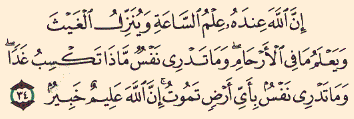 إِنَّ ٱللَّهَ عِندَهُۥ عِلْمُ ٱلسَّاعَةِ وَيُنَزِّلُ ٱلْغَيْثَ
وَيَعْلَمُ مَا فِى ٱلْأَرْحَامِ ۖ وَمَا تَدْرِى نَفْسٌ مَّاذَا تَكْسِبُ غَدًا ۖ
وَمَا تَدْرِى نَفْسٌۢ بِأَىِّ أَرْضٍ تَمُوتُ ۚ إِنَّ ٱللَّهَ عَلِيمٌ خَبِيرٌۢ ٣٤